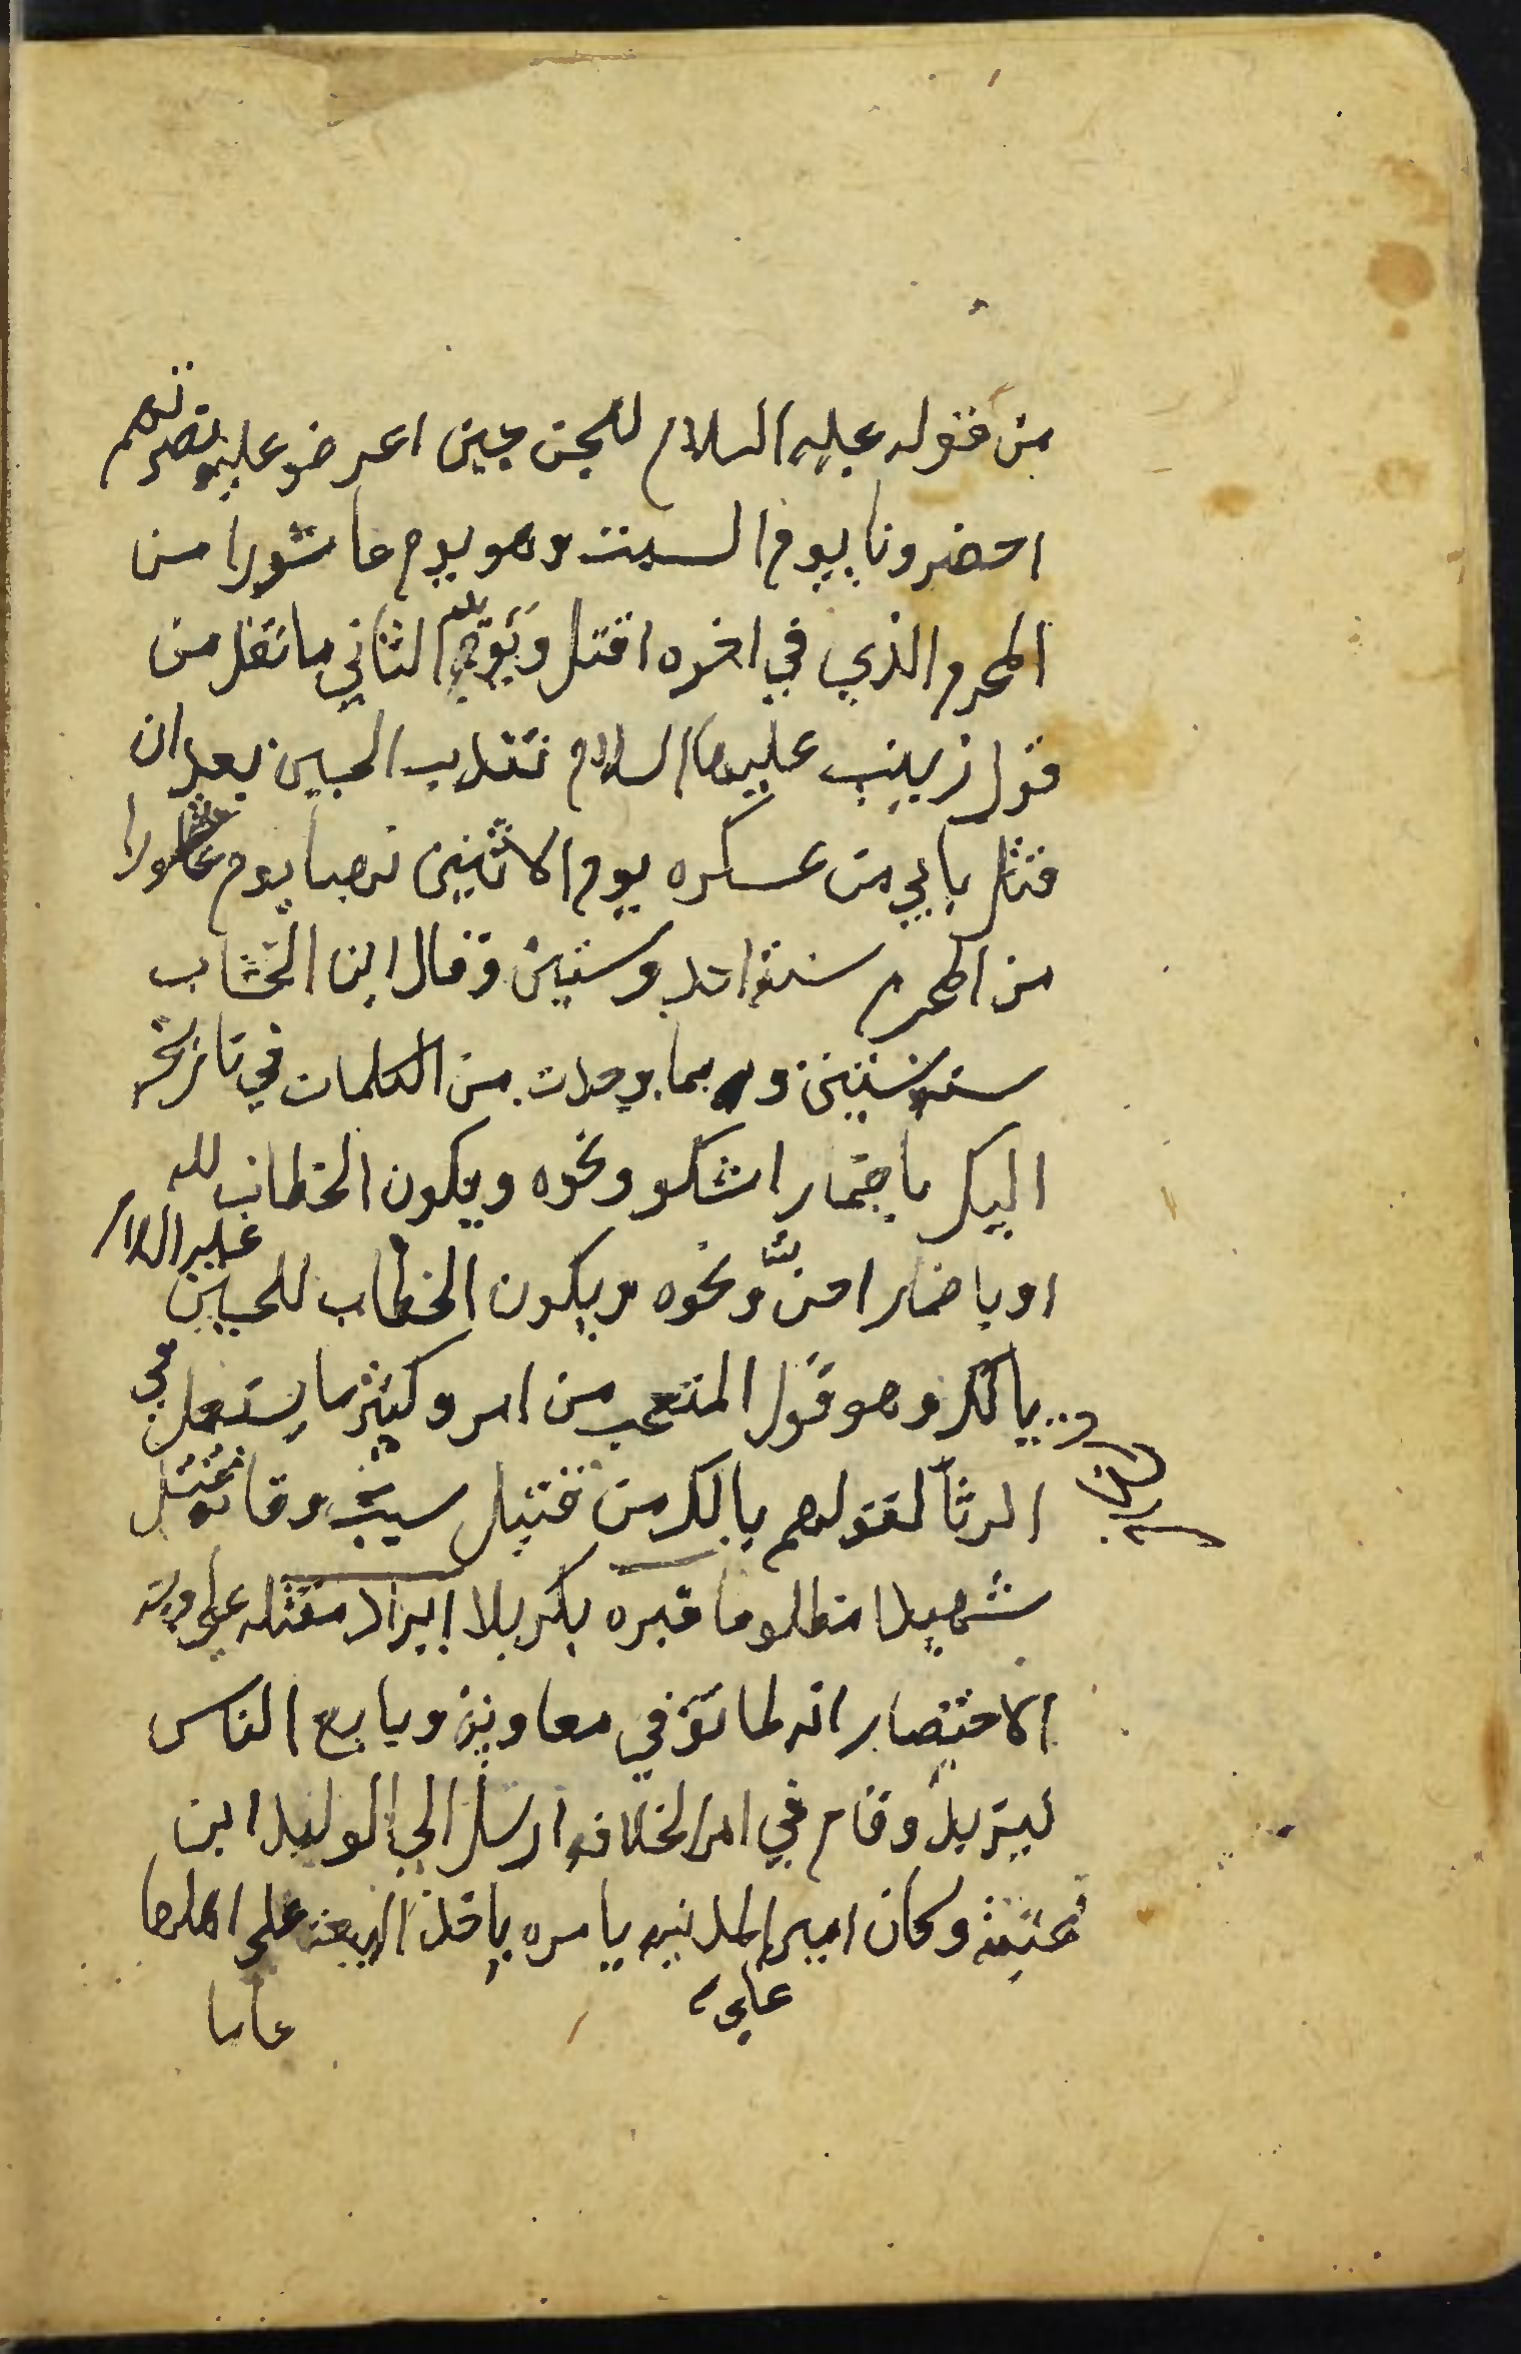 من قوله عليه السلام للجن حين اعرضو عليه نصرتهم
احضرونا يوم السبت وهو يوم عاشورا من
المحرم الذي في اخره اقتل ويؤيد الثاني ما نقل من
قول زينب عليها السلام تندب الحسين بعد ان
قتل بابي من عسكره يوم الاثنين نهبا يوم عاشورا
من المحرم سنة احد وستين وقال ابن الخشاب
سنة ستين وربما وجدت من الكلمات في تاريخه
اليك باضمار اشكو ونحوه ويكون الخطاب لله
او باضمار احزن ونحوه ويكون الخطاب للحسين
عليه السلام
يا لك وهو قول المتعجب من امر وكثير ما يستعمل في
الرثا لقولهم يا لك من قتيل
شهيدا مظلوما قبره بكربلا ايراد مقتله على
الاختصار انه لما توفي معاوية وبايع الناس
ليزيد وقام في امر الخلافه ارسل الي الوليد ابن
عتبة وكان امير المدنيه يامره باخذ البيعة على اهلها
عاما